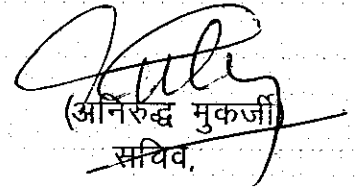 (अनिरुद्ध मुकर्जी)
सचिव,